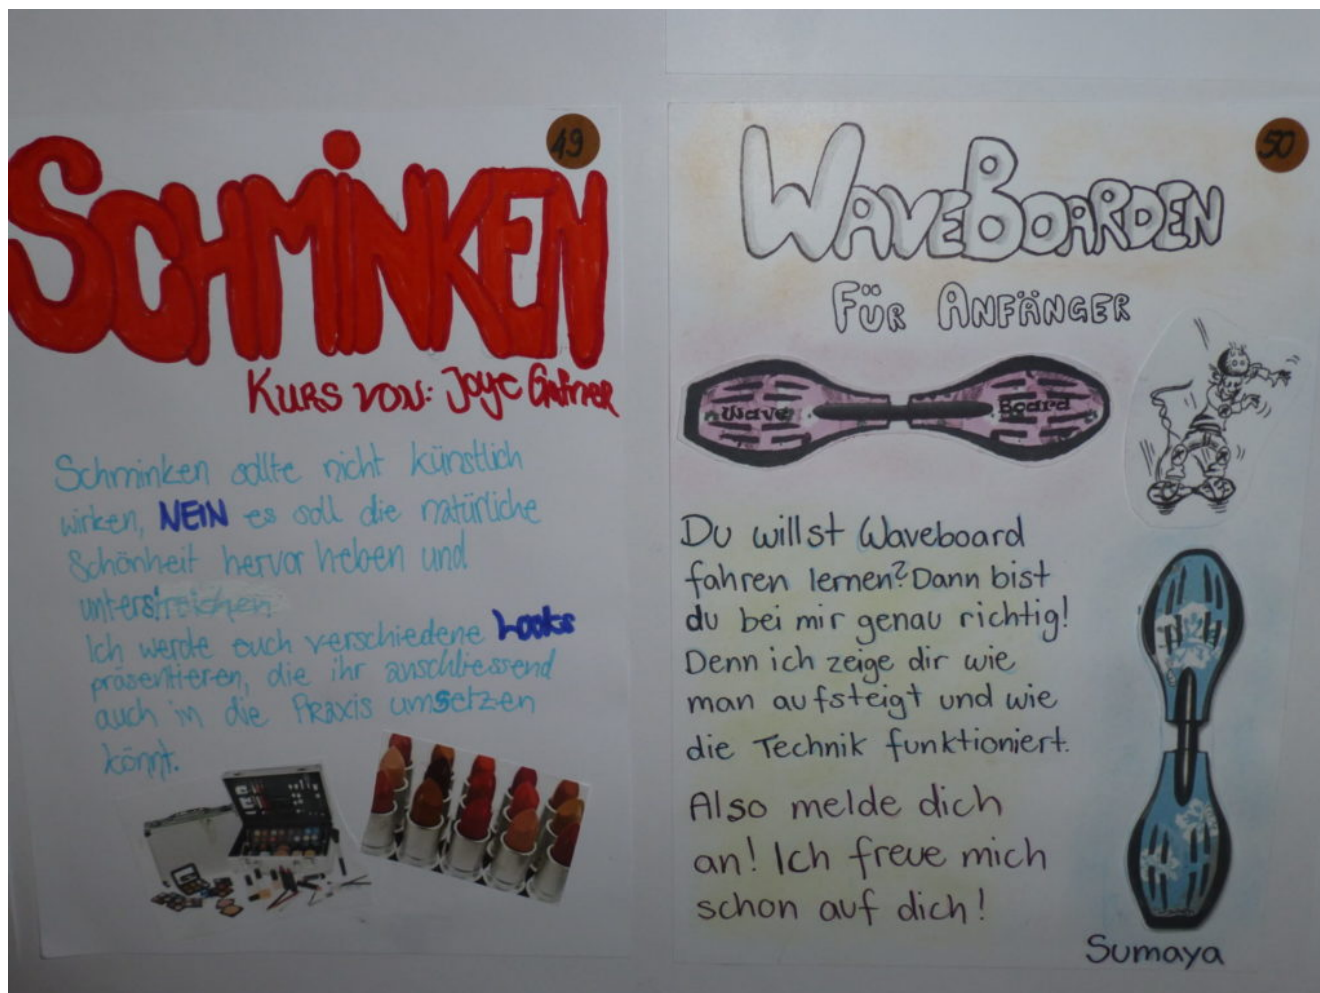 49
SCHMINKEN
KURS VON: Joyce
Schminken sollte nicht künstlich
wirken, NEIN es soll die natürliche
Schönheit hervor heben und
unterstreichen.
Ich werde euch verschiedene Looks
präsentieren, die ihr anschliessend
auch in die Praxis umsetzen
könnt.
50
WAVEBOARDEN
FÜR ANFÄNGER
Wave Board
Du willst Waveboard
fahren lernen? Dann bist
du bei mir genau richtig!
Denn ich zeige dir wie
man aufsteigt und wie
die Technik funktioniert.
Also melde dich
an! Ich freue mich
schon auf dich!
Sumaya